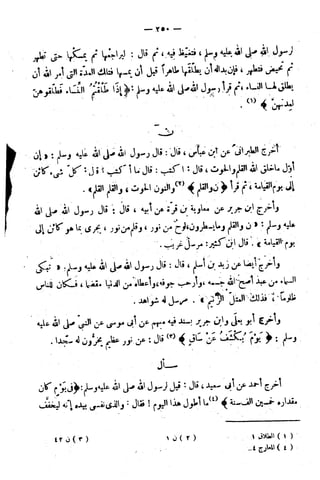 — ٢٥٠ —
لرسول الله صلى الله عليه وسلم، فتغيظ فيه، ثم قال: ليراجعها ثم يمسكها حتى تطهر
ثم تحيض فتطهر، فإن بدا له أن يطلقها طاهراً قبل أن يمسها فتلك العدة التى أمر الله أن
يطلق لها النساء، ثم قرأ رسول الله صلى الله عليه وسلم: ﴿إذا طلقتم النساء فطلقوهن
لعدتهن﴾ (١).
ن
أخرج الطبرانى عن ابن عباس، قال: قال رسول الله صلى الله عليه وسلم: «إن
أول ما خلق الله القلم والحوت، قال: اكتب، قال: ما أكتب؟ قال: كل شىء كائن
إلى يوم القيامة»، ثم قرأ ﴿ن والقلم﴾ (٢) والنون الحوت، والقلم القلم».
وأخرج ابن جرير عن معاوية بن قرة عن أبيه، قال: قال رسول الله صلى الله
عليه وسلم: «ن والقلم وما يسطرون، لوح من نور، وقلم من نور، يجرى بما هو كائن إلى
يوم القيامة». قال ابن كثير: مرسل غريب.
وأخرج أيضا عن زيد بن أسلم، قال: قال رسول الله صلى الله عليه وسلم: «تبكى
السماء من عبد أصح الله جسمه، وأرحب جوفه، وأعطاه من الدنيا مقضما، فكان للناس
ظلوما، فذلك العتل الزنيم». مرسل له شواهد.
وأخرج أبو يعلى وابن جرير بسند فيه مبهم عن أبى موسى عن النبى صلى الله عليه
وسلم: ﴿يوم يكشف عن ساق﴾ (٣) قال: عن نور عظيم يخرون له سجدا.
سأل
أخرج أحمد عن أبى سعيد، قال: قيل لرسول الله صلى الله عليه وسلم: ﴿فى يوم كان
مقداره خمسين ألف سنة﴾ (٤) ما أطول هذا اليوم! فقال: والذى نفسى بيده إنه ليخفف
(١) الطلاق ١ (٢) ن ١ (٣) ن ٤٢
(٤) المعارج ٤.